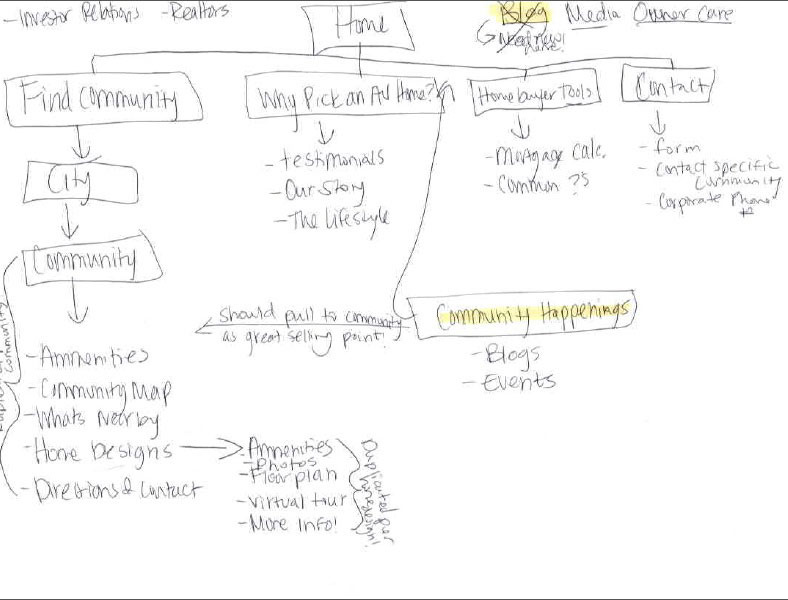 - Investor Relations
- Realtors
Home
Blog
Media
Owner Care
Need new
Find Community
Why Pick an AV Home?
Homebuyer Tools
Contact
City
- testimonials
- Our Story
- The lifestyle
- Mortgage calc.
- Common ?s
- form
- Contact specific
Community
- Corporate Phone
#
Community
should pull to community
as great selling point!
Community Happenings
- Blogs
- Events
community
- Ammenities
- Community Map
- Whats Nearby
- Home Designs
- Directions & Contact
- Ammenities
- Photos
- Floor plan
- Virtual tour
- More Info!
Duplicated per
home design!